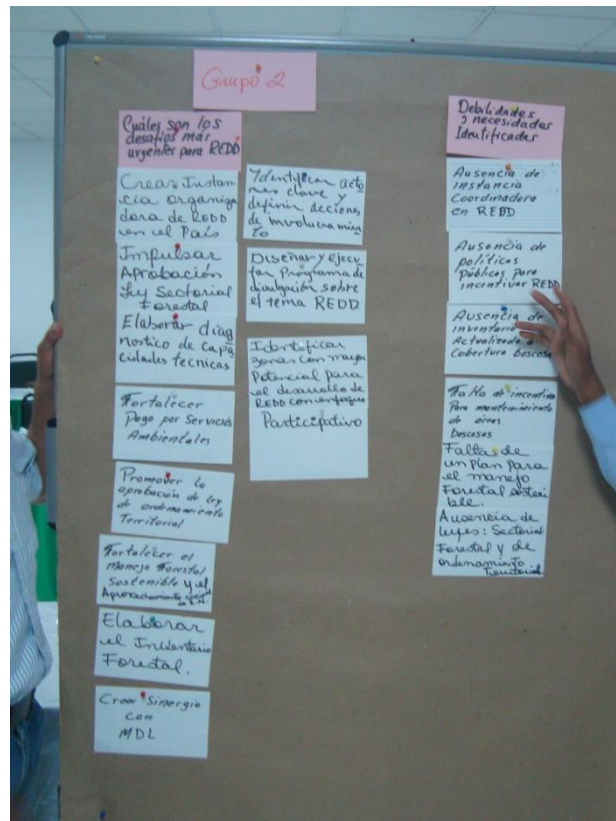 Grupo 2
Cuáles son los
desafíos más
urgentes para REDD
Crear Instan
cia organiza
dora de REDD
en el País
Impulsar
Aprobación
Ley Sectorial
Forestal
Elaborar diag
nostico de capa
cidades tecnicas
Fortalecer
Pago por Servicios
Ambientales
Promover la
aprobación de ley
de ordenamiento
Territorial
Fortalecer el
manejo Forestal
Sostenible y el
Aprovechamiento
Elaborar
el Inventario
Forestal.
Crear Sinergia
con
MDL
Identificar acto
res clave y
definir acciones
de involucramien
to
Diseñar y ejecu
tar Programa de
divulgación sobre
el tema REDD
Identificar
zonas con mayor
Potencial para
el desarrollo de
REDD con enfoque
Participativo
Debilidades
y necesidades
Identificadas
Ausencia de
instancia
Coordinadora
en REDD
Ausencia de
políticas
Públicas para
incentivar REDD
Ausencia de
inventario
Actualizado
Cobertura boscosa
Falta de incentivo
Para mantenimiento
de áreas
Boscosas
Falta de
un plan para
el manejo
Forestal sosteni
ble.
Ausencia de
Leyes: Sectorial
Forestal y de
ordenamiento
Territorial